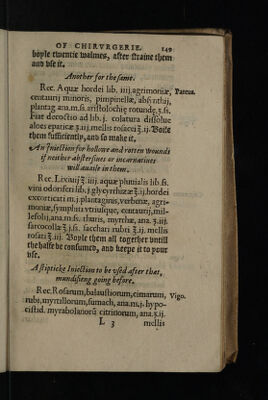 OF CHIRVRGERIE. 149
boyle twentie walmes, after straine them
and vse it.
Another for the same.
Rec. Aquæ hordei lib. iiij. agrimoniæ, Pareus.
centaurij minoris, pimpinellæ, absynthij,
plantag. ana. m. ss. aristolochię rotundę. ʒ. ss.
Fiat decoctio ad lib. j. colatura dissolue
aloes epaticæ ʒ. iij. mellis rosacei ℥. ij. Boile
them sufficiently, and so make it.
An Iniection for hollow and rotten wounds
if neither abstersiues or incarnatiues
will auaile in them.
Rec. Lixiuij ℥. iiij. aquæ pluuialis lib. ss.
vini odoriferi lib. j. glycyrrhizæ ℥. ij. hordei
excorticati m. j. plantaginis, verbenæ, agri-
moniæ, symphiti vtriusque, centaurij, mil-
lefolij, ana. m. ss. thuris, myrrhæ, ana. ʒ. iij.
sarcocollæ ʒ. j. ss. sacchari rubri ℥. ij. mellis
rosati ℥. ij. Boyle them all together vntill
the halfe be consumed, and keepe it to your
vse.
A stipticke Iniection to be vsed after that,
mundifieng going before.
Rec. Rosarum, balaustiorum, cimarum, Vigo.
rubi, myrtillorum, sumach, ana. m. j. hypo-
cistid. myrabolanorū citrinorum, ana. ʒ. ij.
L 3 mellis